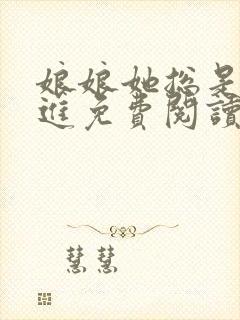 娘娘她總是
進免費閱讀
慧慧